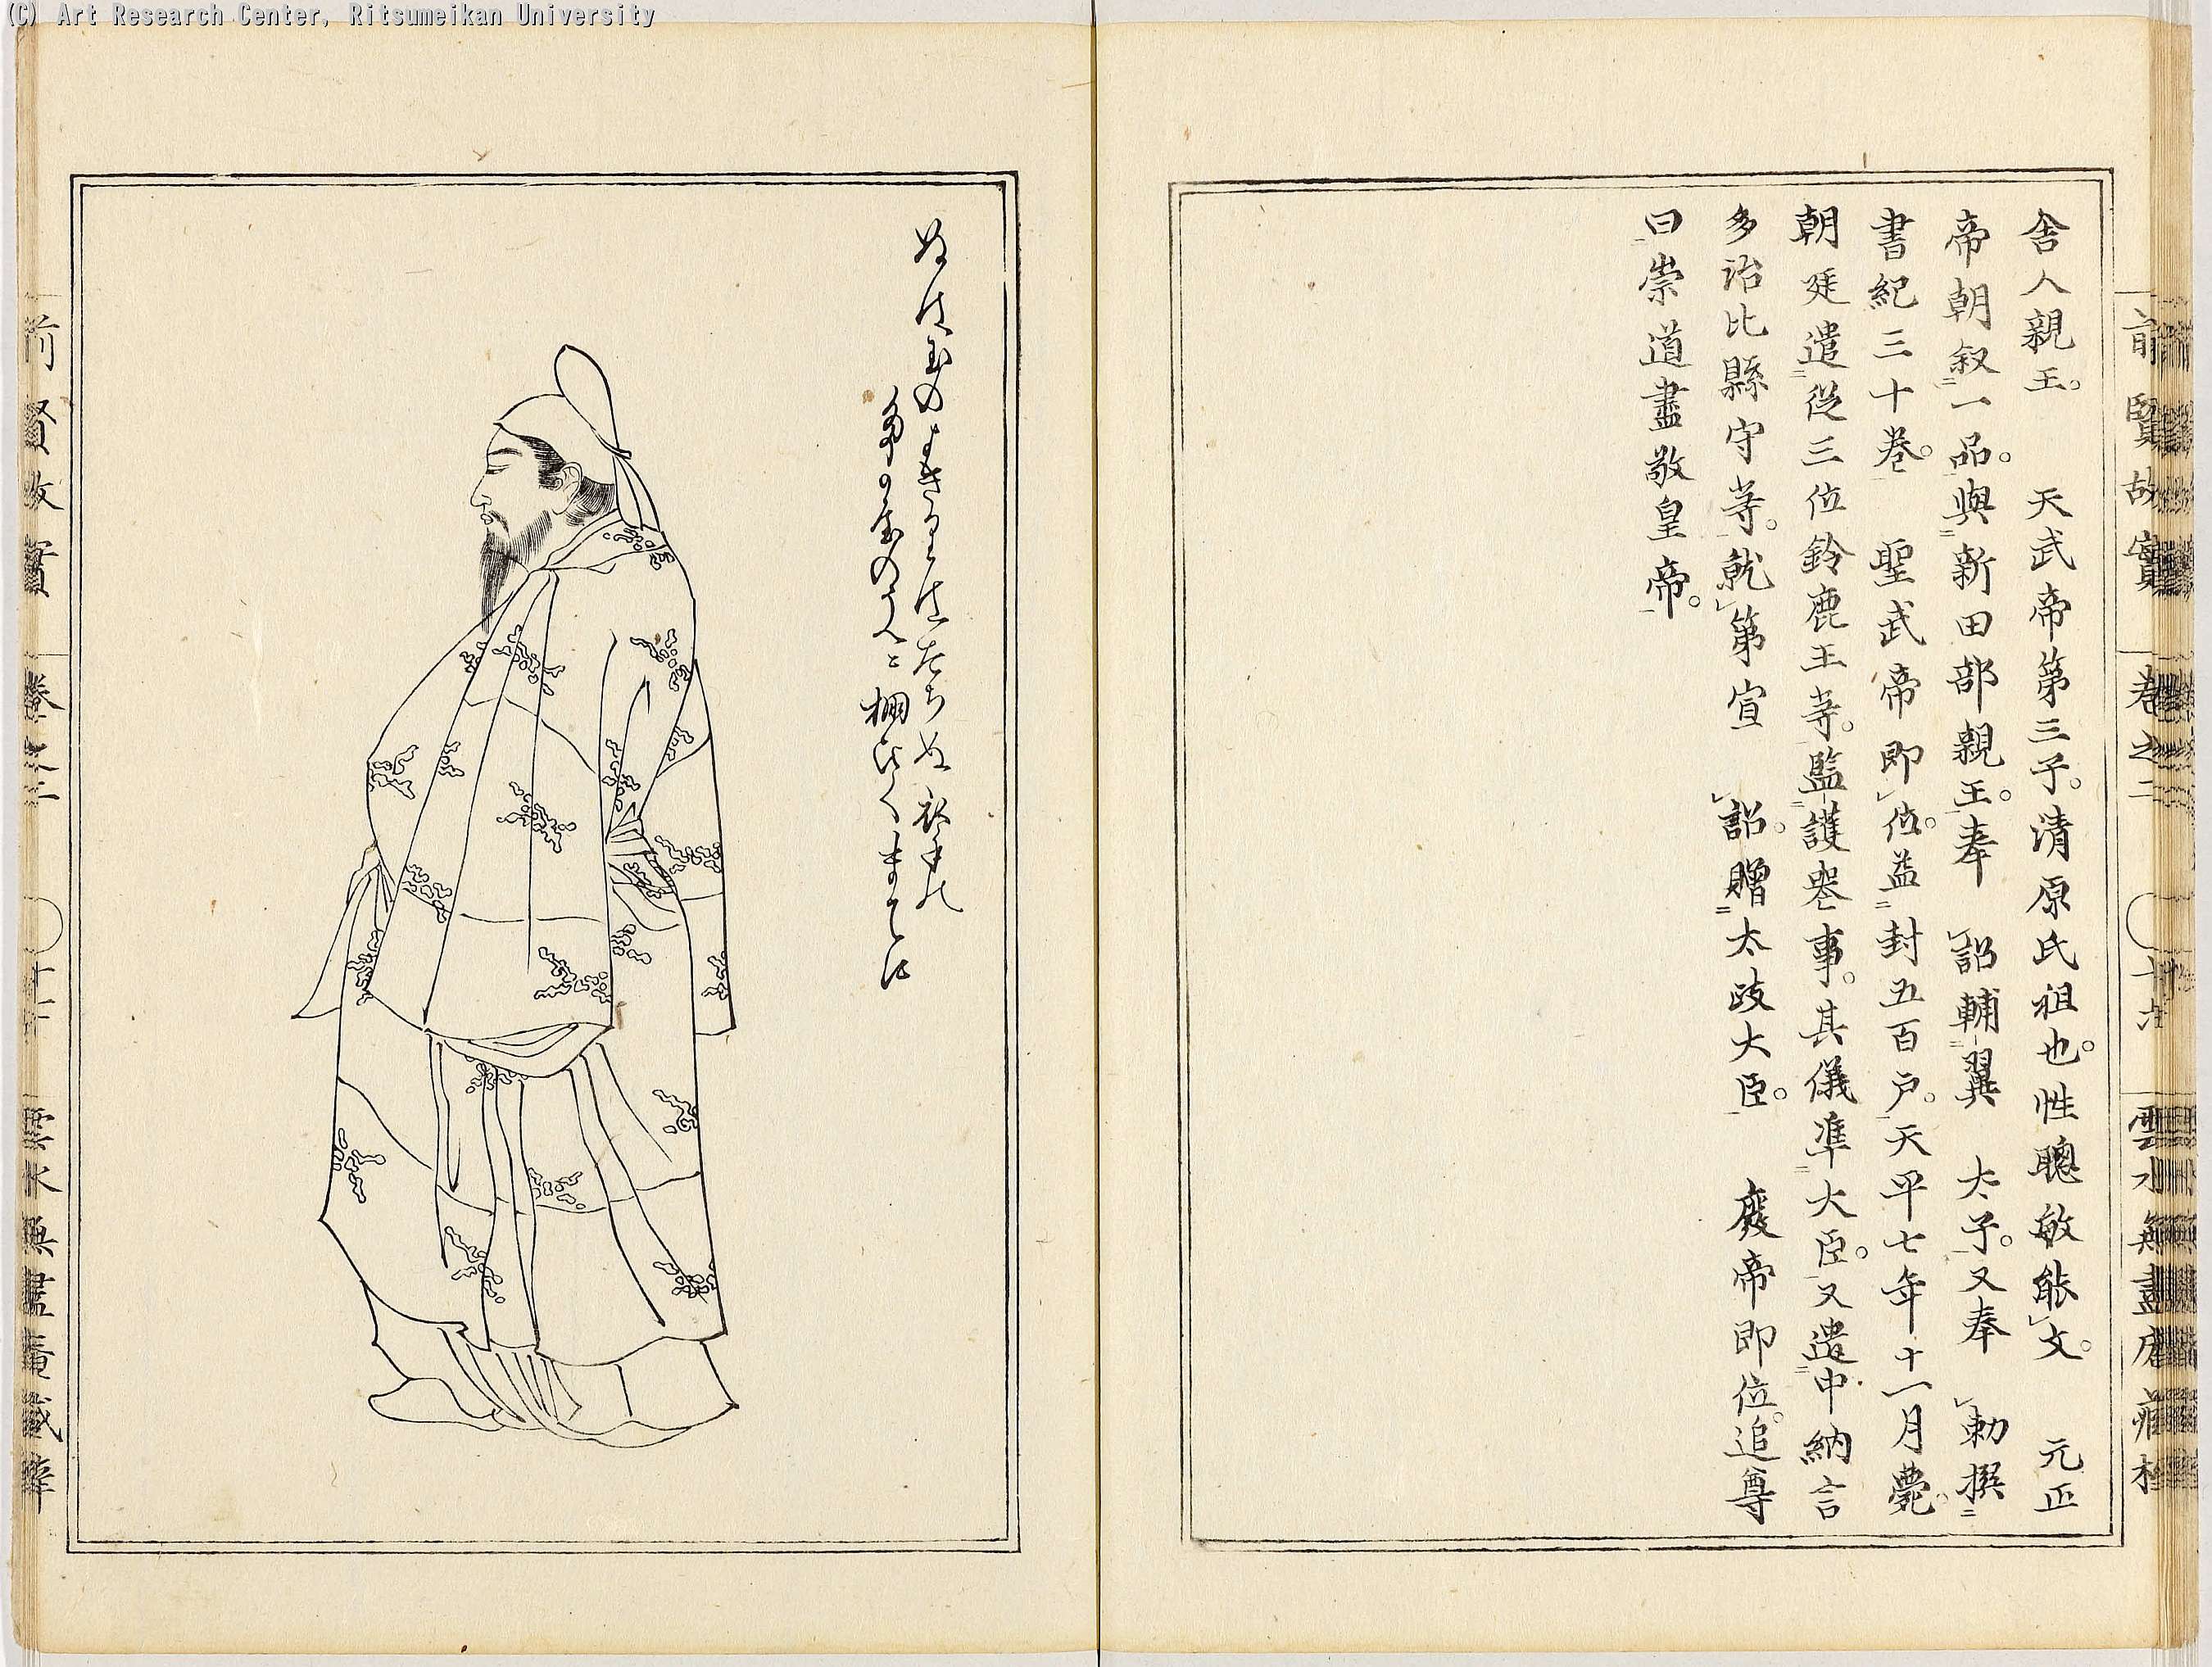 (C) Art Research Center, Ritsumeikan University
前賢故實 卷之二 〇十六 雲水無盡庵藏梓
舍人親王。 天武帝第三子。清原氏祖也。性聰敏能文。 元正
帝朝叙一品。與新田部親王。奉 詔輔翼 太子。又奉 勅撰
書紀三十卷。 聖武帝即位。益封五百户。天平七年十一月薨。
朝廷遣從三位鈴鹿王等。監護喪事。其儀準大臣。又遣中納言
多治比縣守等。就第宣 詔。贈太政大臣。 廢帝即位。追尊
曰崇道盡敬皇帝。
ぬは玉の
棚
前賢故實 卷之二 〇 雲水無盡庵藏梓